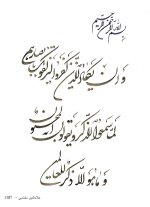 بسم الله الرحمن الرحیم
و ان یکاد الذین کفروا لیزلقونک بابصارهم
لما سمعوا الذکر و یقولون انه لمجنون
و ما هو الا ذکر للعالمین